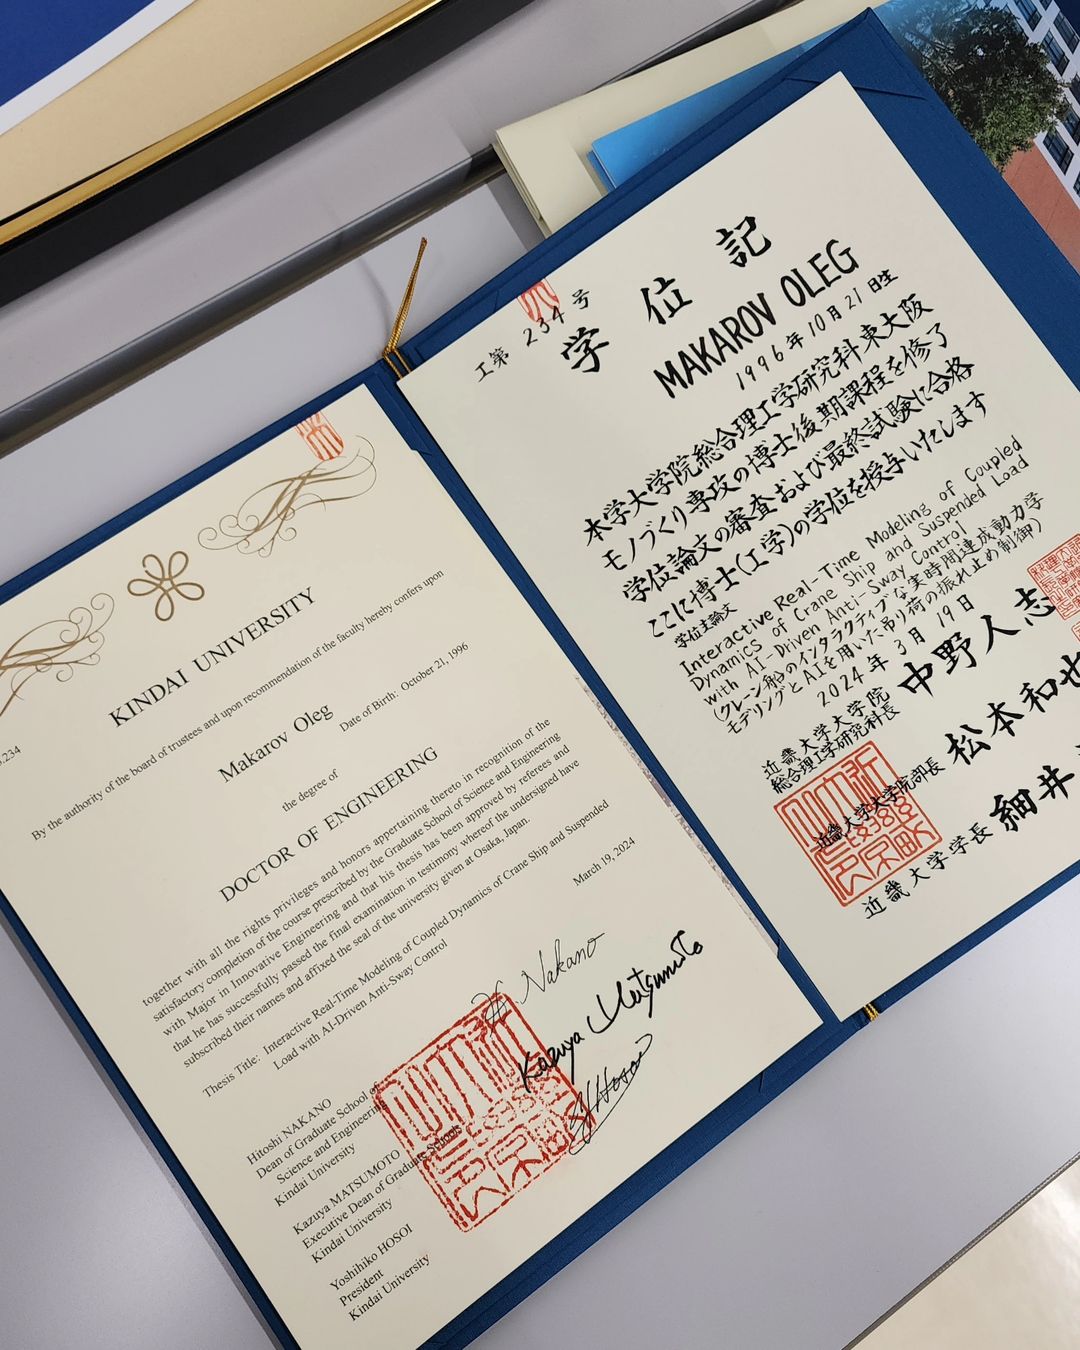 KINDAI UNIVERSITY
By the authority of the board of trustees and upon recommendation of the faculty hereby confers upon
Makarov Oleg
Date of Birth: October 21, 1996
the degree of
DOCTOR OF ENGINEERING
together with all the rights privileges and honors appertaining thereto in recognition of the
satisfactory completion of the course prescribed by the Graduate School of Science and Engineering
with Major in Innovative Engineering and that his thesis has been approved by referees and
that he has successfully passed the final examination in testimony whereof the undersigned have
subscribed their names and affixed the seal of the university given at Osaka, Japan.
Thesis Title: Interactive Real-Time Modeling of Coupled Dynamics of Crane Ship and Suspended
Load with AI-Driven Anti-Sway Control
March 19, 2024
Hitoshi NAKANO
Dean of Graduate School of
Science and Engineering
Kindai University
H. Nakano
Kazuya MATSUMOTO
Executive Dean of Graduate Schools
Kindai University
Kazuya Matsumoto
Yoshihiko HOSOI
President
Kindai University
Y Hosoi
工第 234 号
学位記
MAKAROV OLEG
1996年10月21日生
本学大学院総合理工学研究科東大阪
モノづくり専攻の博士後期課程を修了
学位論文の審査および最終試験に合格
ここに博士(工学)の学位を授与いたします
学位主論文
Interactive Real-Time Modeling of Coupled
Dynamics of Crane Ship and Suspended Load
with AI-Driven Anti-Sway Control
(クレーン船のインタラクティブな実時間連成動力学
モデリングとAIを用いた吊り荷の振れ止め制御)
2024年3月19日
近畿大学大学院
総合理工学研究科長 中野人志
近畿大学大学院部長 松本和也
近畿大学学長 細井